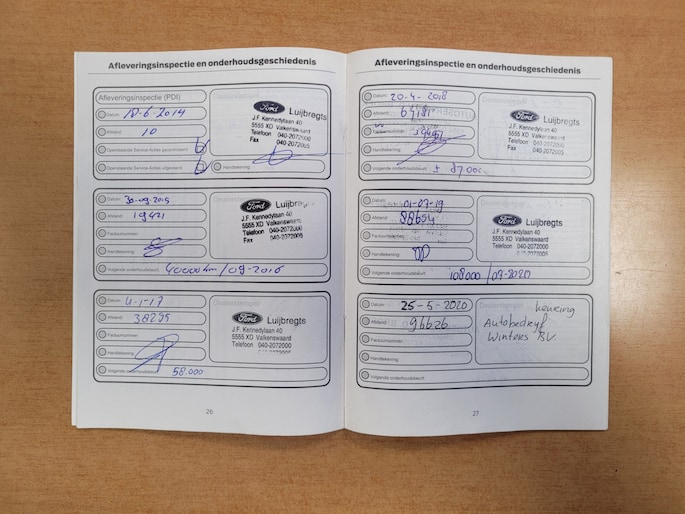 Afleveringsinspectie en onderhoudsgeschiedenis
Afleveringsinspectie (PDI)
Datum: 10-6-2014
Afstand: 10
Openstaande Service-Acties gecontroleerd:
Openstaande Service-Acties uitgevoerd:
Handtekening:
Ford Luijbregts
J.F. Kennedylaan 40
5555 XD Valkenswaard
Telefoon 040-2072000
Fax 040-2072005
Datum: 30-09-2015
Afstand: 19421
Factuurnummer:
Handtekening:
Volgende onderhoudsbeurt: 40000km/09-2016
Ford Luijbregts
J.F. Kennedylaan 40
5555 XD Valkenswaard
Telefoon 040-2072000
Fax 040-2072005
Datum: 4-1-17
Afstand: 38295
Factuurnummer:
Handtekening:
Volgende onderhoudsbeurt: 58.000
Ford Luijbregts
J.F. Kennedylaan 40
5555 XD Valkenswaard
Telefoon 040-2072000
26
Afleveringsinspectie en onderhoudsgeschiedenis
Datum: 20-4-2018
Afstand:
Factuurnummer:
Handtekening:
Volgende onderhoudsbeurt: ± 87.000
Ford Luijbregts
J.F. Kennedylaan 40
5555 XD Valkenswaard
Telefoon 040-2072000
Fax 040-2072005
Datum: 01-07-19
Afstand: 88654
Factuurnummer:
Handtekening:
Volgende onderhoudsbeurt: 108000/07-2020
Ford Luijbregts
J.F. Kennedylaan 40
5555 XD Valkenswaard
Telefoon 040-2072000
Fax 040-2072005
Datum: 25-5-2020
Afstand: 96626
Factuurnummer:
Handtekening:
Volgende onderhoudsbeurt:
keuring
Autobedrijf
Winters B.V.
27